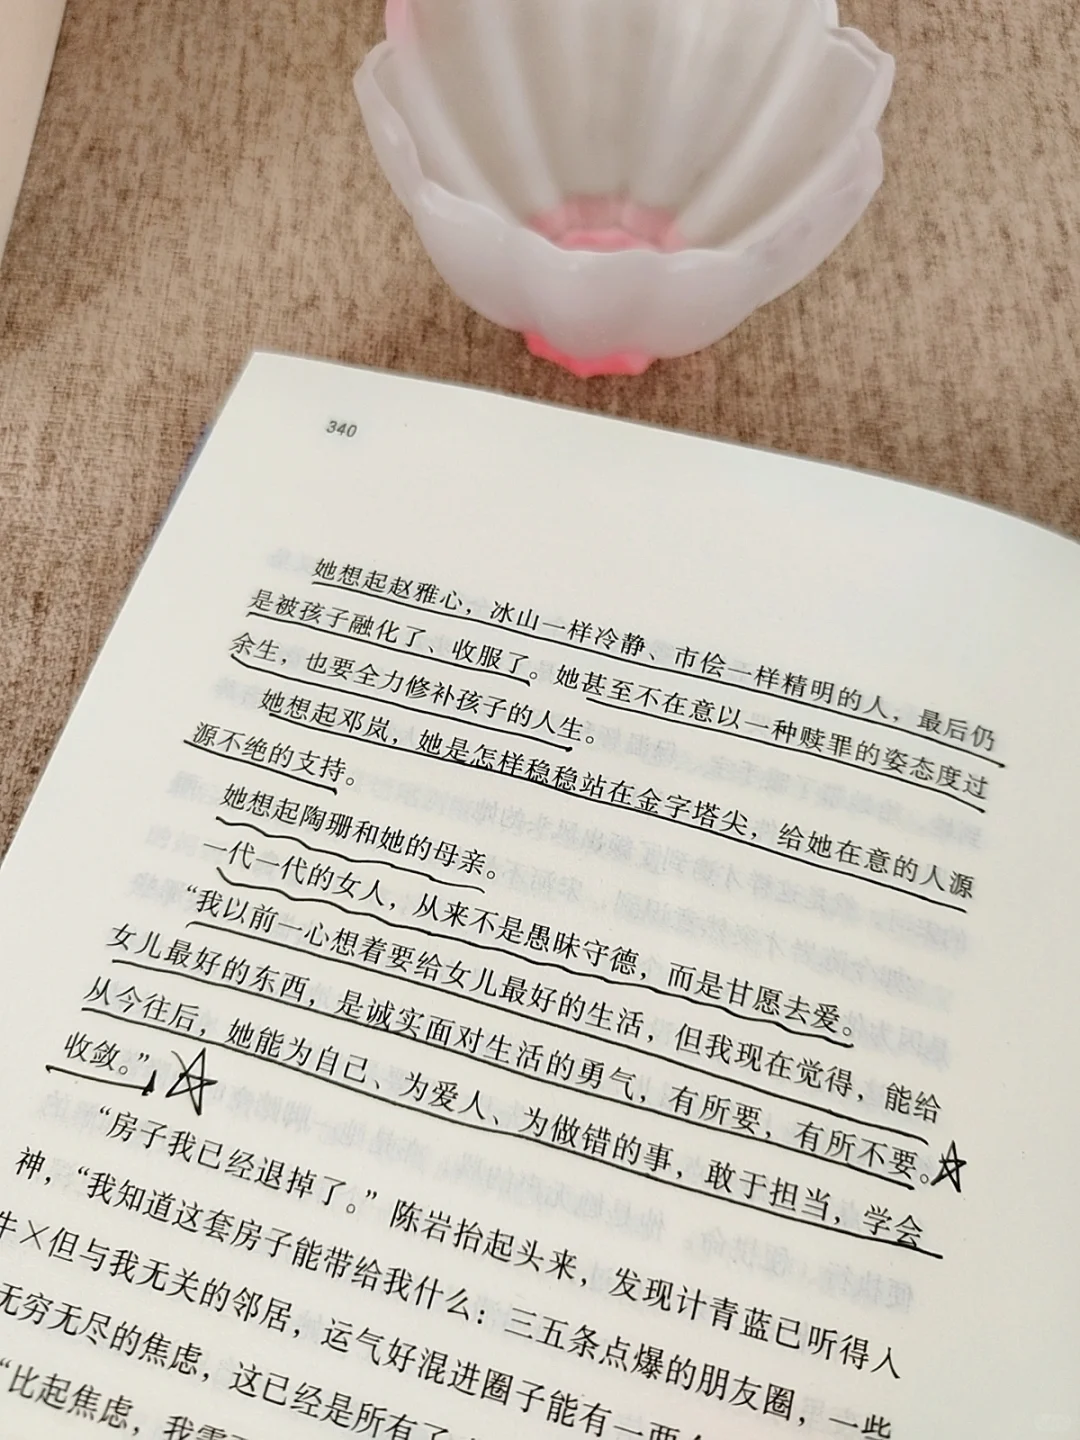 340
她想起赵雅心，冰山一样冷静、市侩一样精明的人，最后仍
是被孩子融化了、收服了。她甚至不在意以一种赎罪的姿态度过
余生，也要全力修补孩子的人生。
她想起邓岚，她是怎样稳稳站在金字塔尖，给她在意的人源
源不绝的支持。
她想起陶珊和她的母亲。
一代一代的女人，从来不是愚昧守德，而是甘愿去爱。
“我以前一心想着要给女儿最好的生活，但我现在觉得，能给
女儿最好的东西，是诚实面对生活的勇气，有所要，有所不要。
从今往后，她能为自己、为爱人、为做错的事，敢于担当，学会
收敛。”
“房子我已经退掉了。”陈岩抬起头来，发现计青蓝已听得入
神，“我知道这套房子能带给我什么：三五条点爆的朋友圈，一些
牛×但与我无关的邻居，运气好混进圈子能有一两
无穷无尽的焦虑，这已经是所有了
“比起焦虑，我需